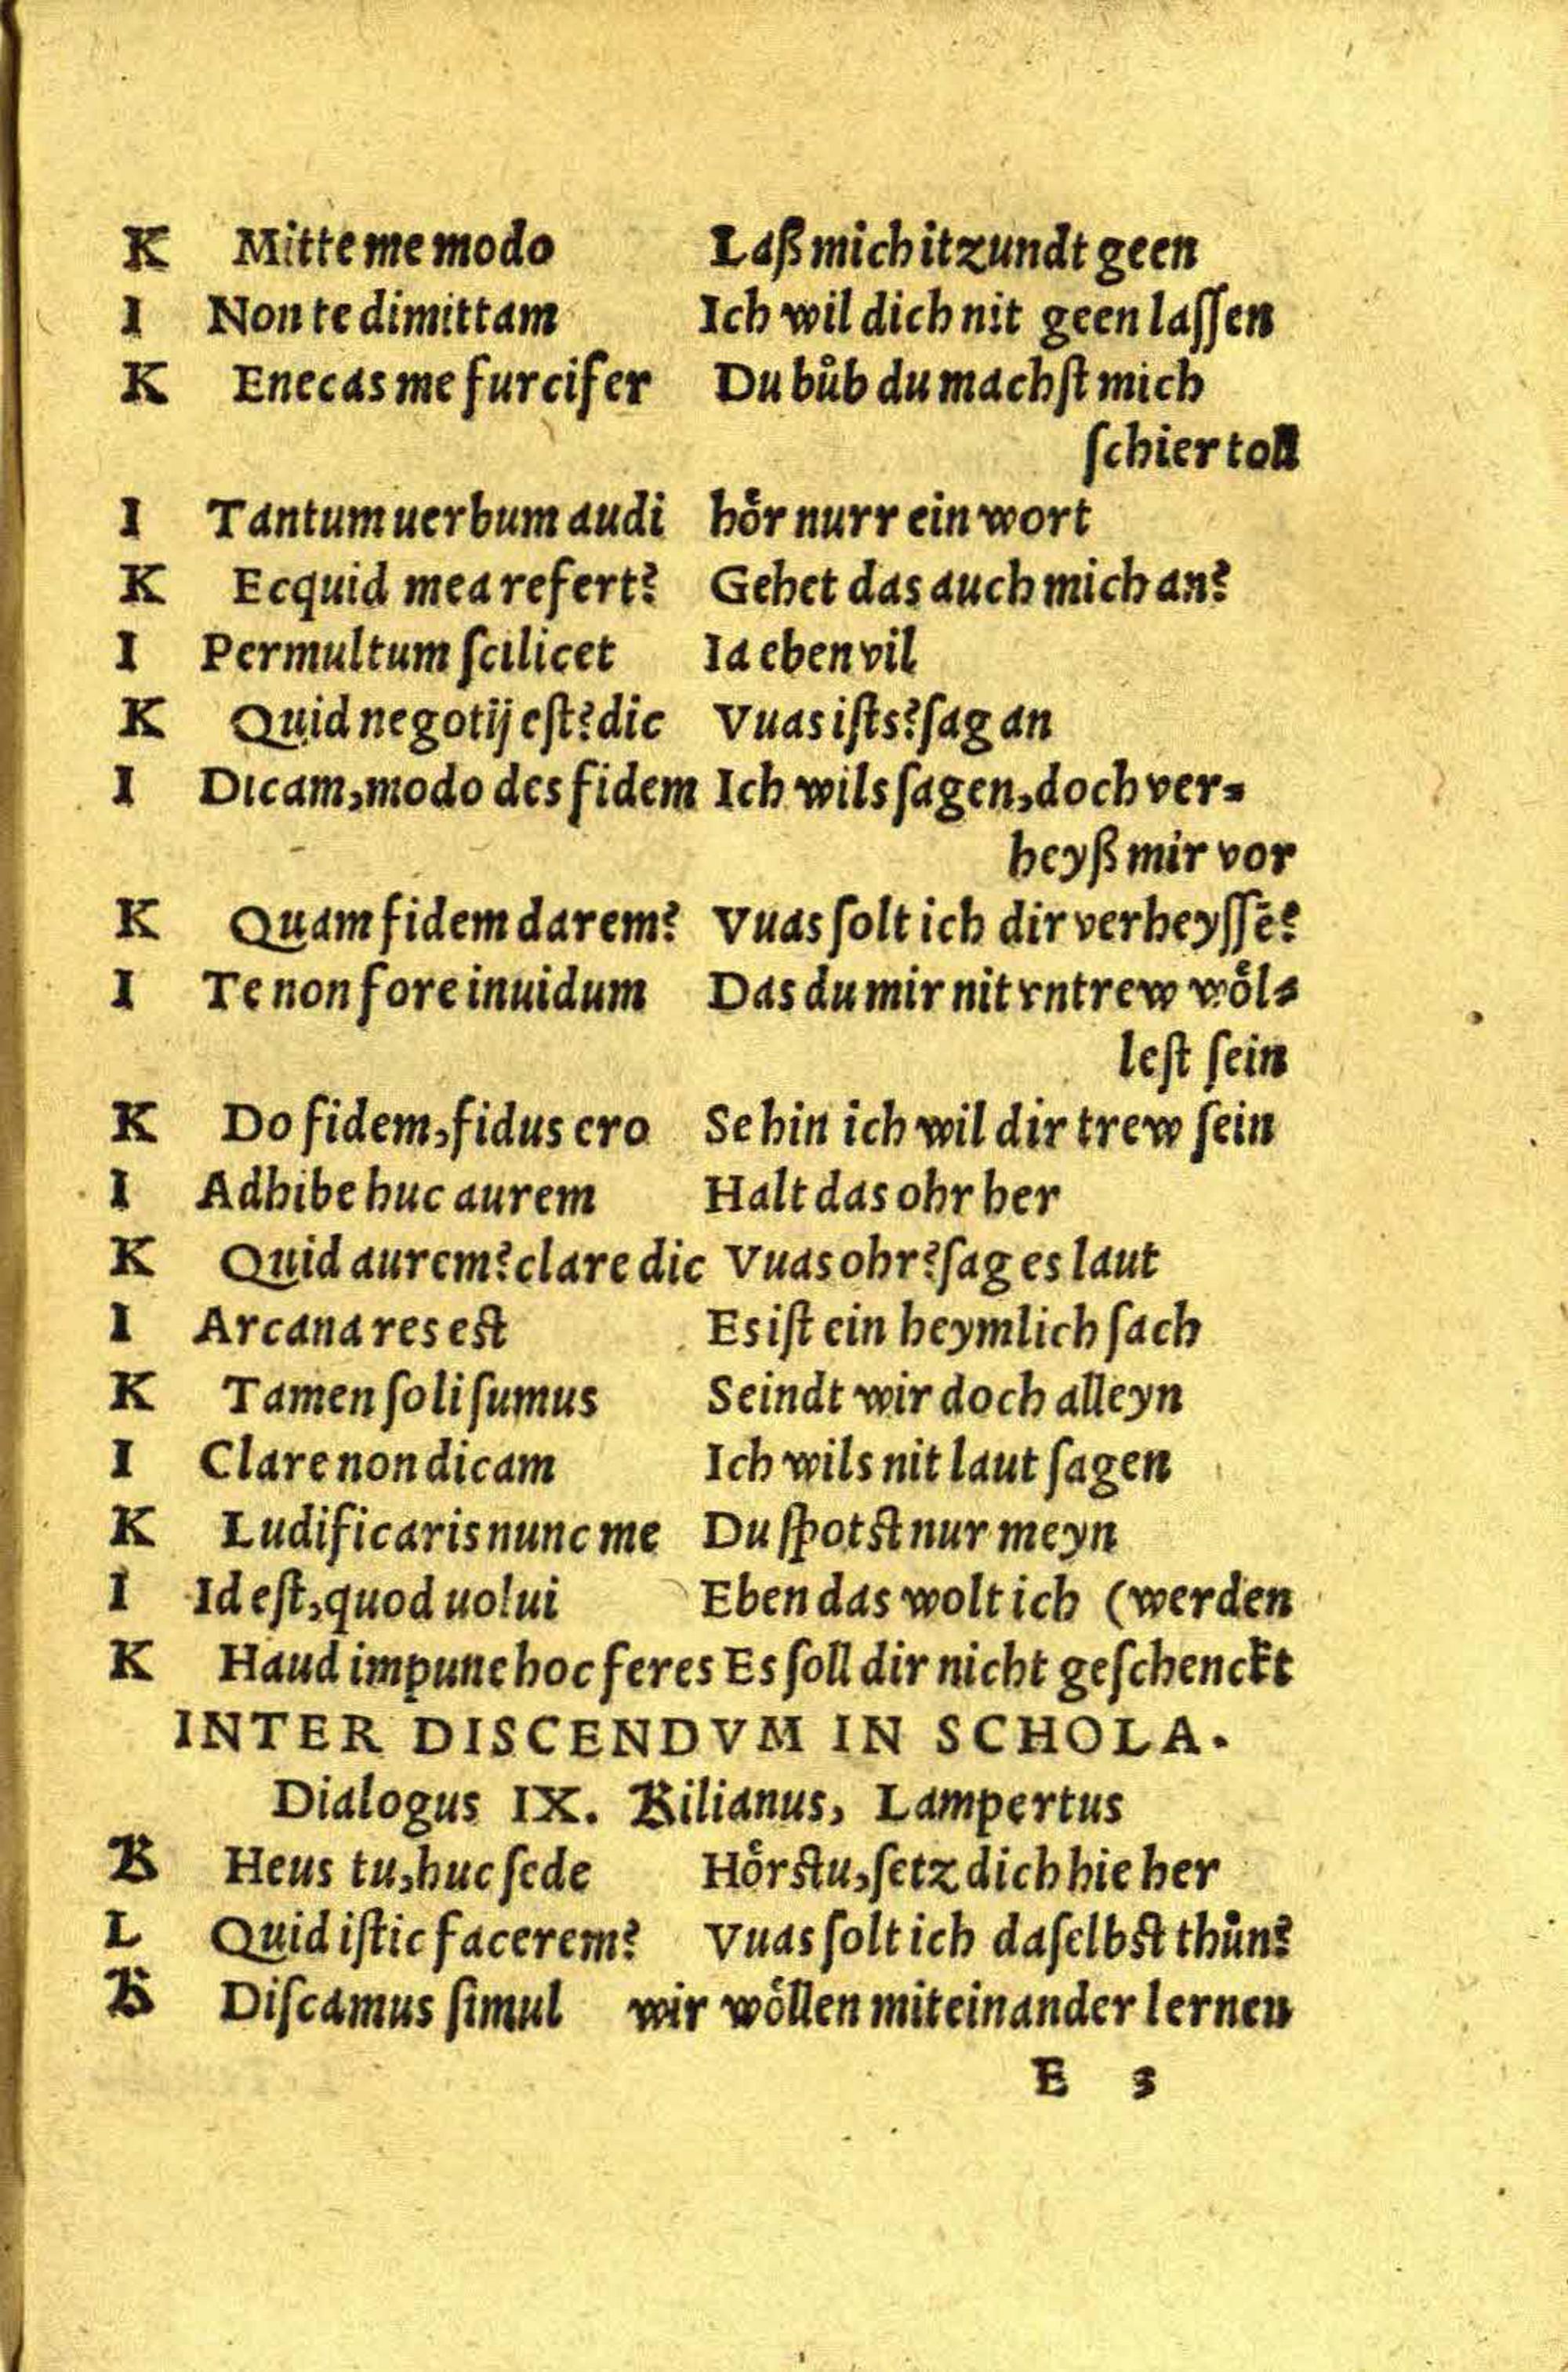 K Mitte me modo Laß mich itzundt geen
I Non te dimittam Ich wil dich nit geen laſſen
K Enecas me furcifer Du bůb du machſt mich
ſchier toll
I Tantum uerbum audi hoͤr nurr ein wort
K Ecquid mea refert? Gehet das auch mich an?
I Permultum ſcilicet Ia eben vil
K Quid negotij eſt? dic Vuas iſts? ſag an
I Dicam, modo des fidem Ich wils ſagen, doch ver⸗
heyß mir vor
K Quam fidem darem? Vuas ſolt ich dir verheyſſē?
I Te non fore inuidum Das du mir nit vntrew woͤl⸗
leſt ſein
K Do fidem, fidus ero Se hin ich wil dir trew ſein
I Adhibe huc aurem Halt das ohr her
K Quid aurem? clare dic Vuas ohr? ſag es laut
I Arcana res est Es iſt ein heymlich ſach
K Tamen ſoli ſumus Seindt wir doch alleyn
I Clare non dicam Ich wils nit laut ſagen
K Ludificaris nunc me Du ſpotst nur meyn
I Id eſt, quod uolui Eben das wolt ich (werden
K Haud impune hoc feres Es ſoll dir nicht geſchenckt
INTER DISCENDVM IN SCHOLA.
Dialogus IX. Kilianus, Lampertus
K Heus tu, huc ſede Hoͤrstu, ſetz dich hie her
L Quid iſtic facerem? Vuas ſolt ich daſelbst thůn?
K Diſcamus ſimul wir woͤllen miteinander lernen
E 3